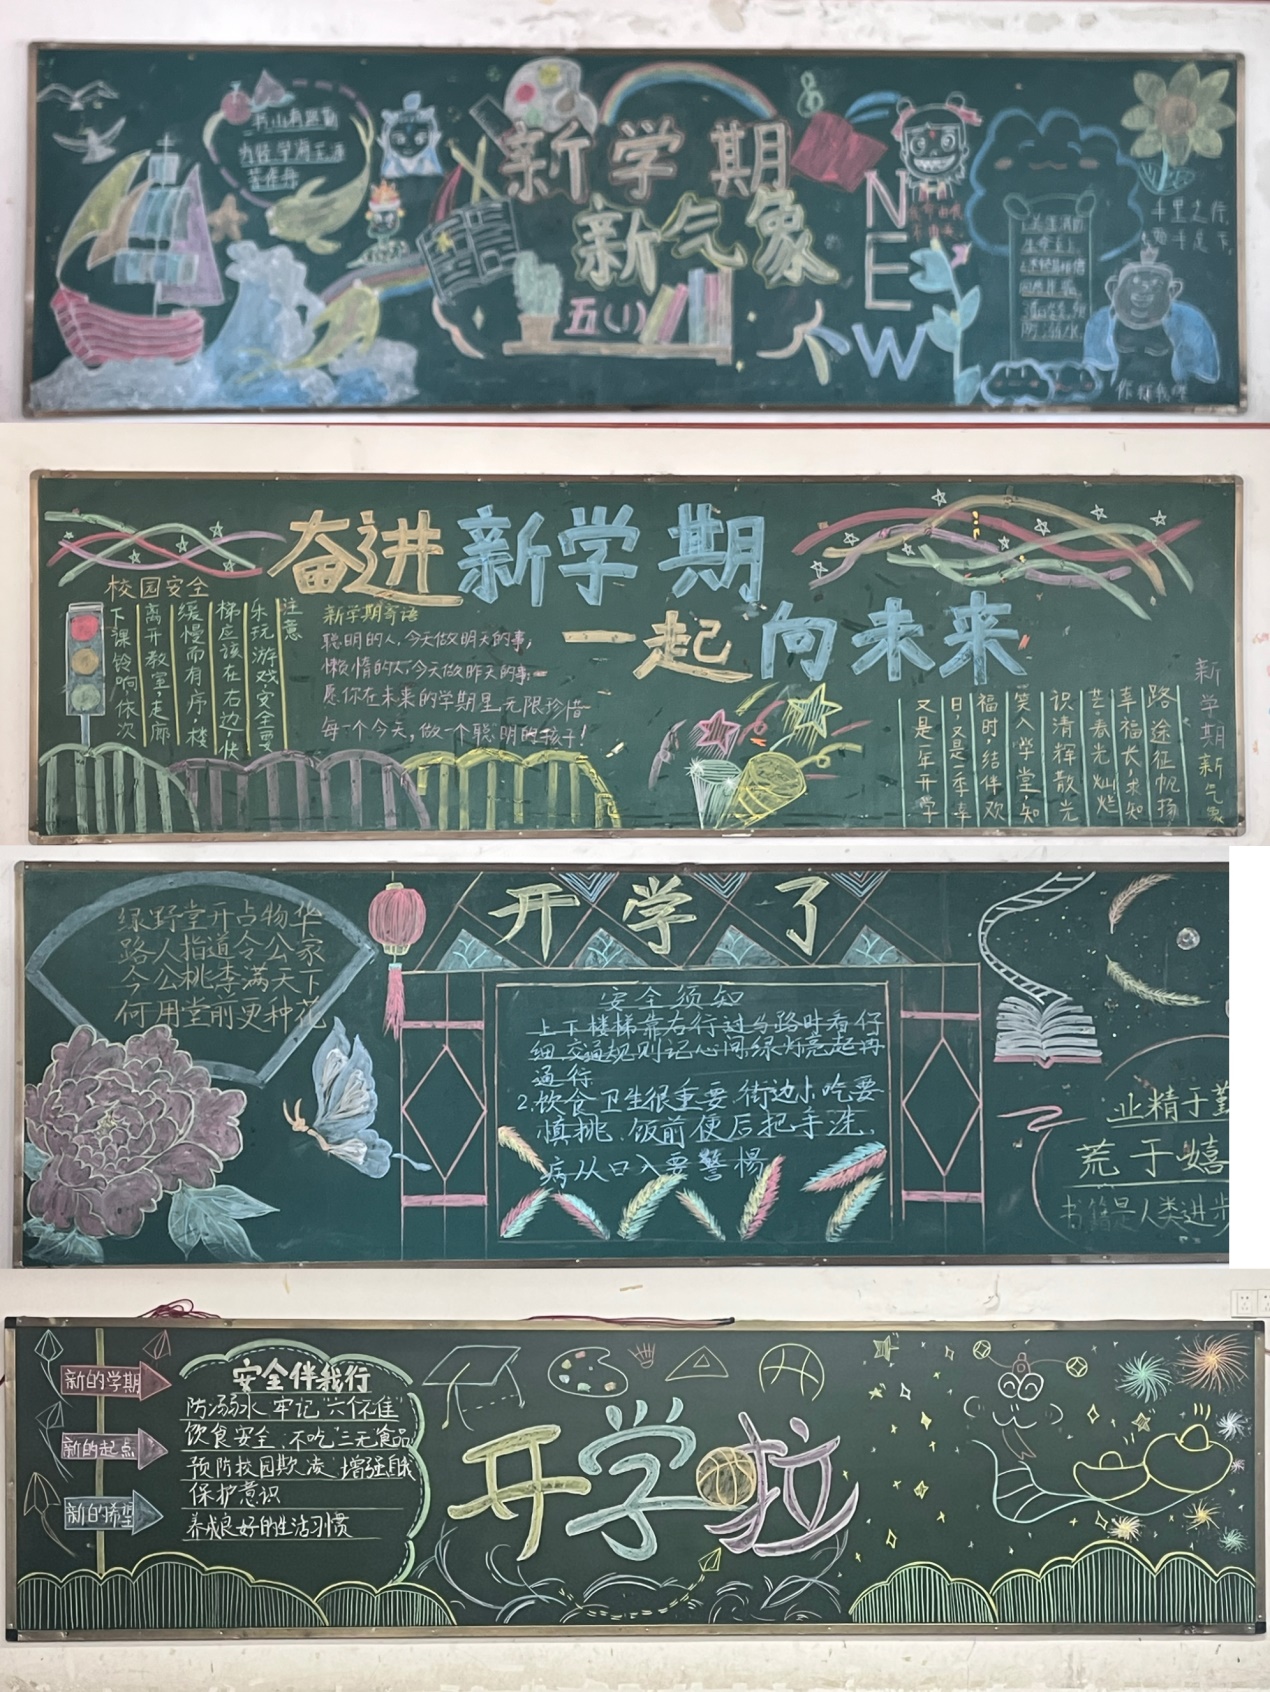 书山有路勤
为径学海无涯
苦作舟
新学期
新气象
五(1)
NEW
关注消防
生命至上
千里之行
始于足下
奋进新学期
一起向未来
校园安全
下课铃响,依次
离开教室,走廊
缓慢而有序,楼
梯应该在右边,快
乐玩游戏,安全要
注意
新学期寄语
聪明的人,今天做明天的事;
懒惰的人,今天做昨天的事
愿你在未来的学期里无限珍惜
每一个今天,做一个聪明的孩子!
新学期新气象
路途征帆扬
幸福长,求知
艺春光灿烂
识清辉散光
笑入学堂,知
福时,结伴欢
日,又是一季幸
又是一年开学
开学了
绿野堂开占物华
路人指道令公家
令公桃李满天下
何用堂前更种花
安全须知
上下楼梯靠右行过马路时看仔
细,交通规则记心间,绿灯亮起再
通行
2.饮食卫生很重要,街边小吃要
慎挑,饭前便后把手洗,
病从口入要警惕
业精于勤
荒于嬉
书籍是人类进步
新的学期
新的起点
新的希望
安全伴我行
防溺水,牢记“六不准”
饮食安全,不吃“三无食品
预防校园欺凌,增强自我
保护意识
养成良好的生活习惯
开学啦